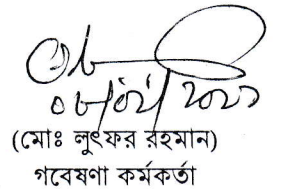 (মোঃ লুৎফর রহমান)
গবেষণা কর্মকর্তা